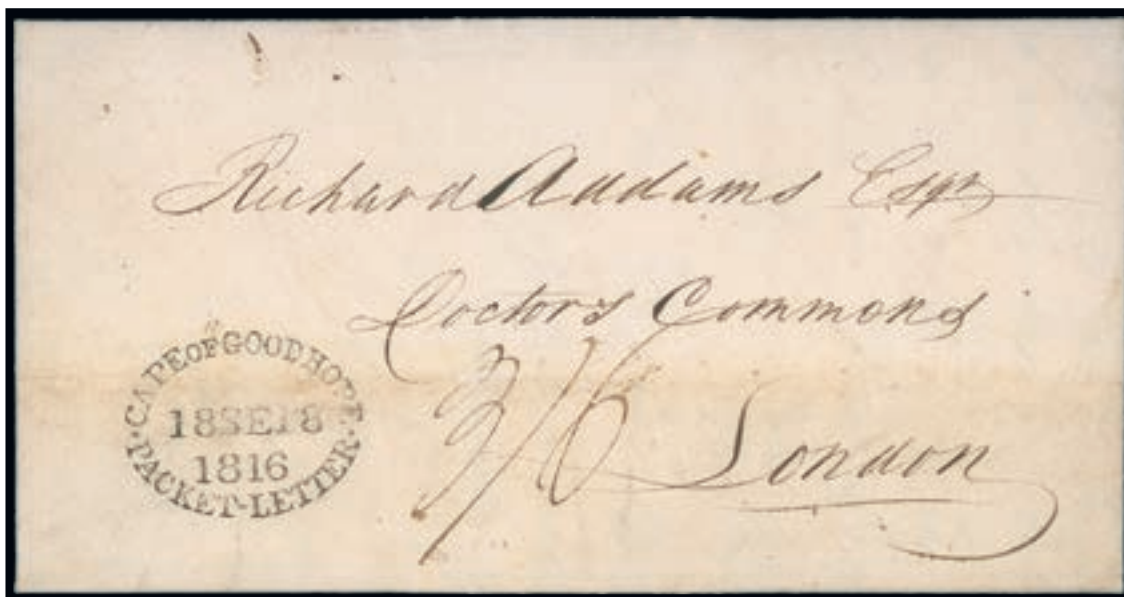 Richard Addams Esqr
Doctors Commons
3/6 London
CAPE OF GOOD HOPE
18SE18
1816
PACKET-LETTER